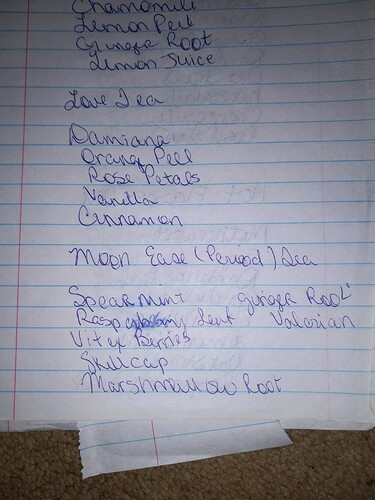 Chamomile
Lemon Peel
Ginger Root
Lemon Juice
Love Tea
Damiana
Orang Peel
Rose Petals
Vanilla
Cinnamon
Moon Ease (Period) Tea
Spearmint Ginger Root
Raspberry Leaf Valerian
Vitex Berries
Skullcap
Marshmellow Root